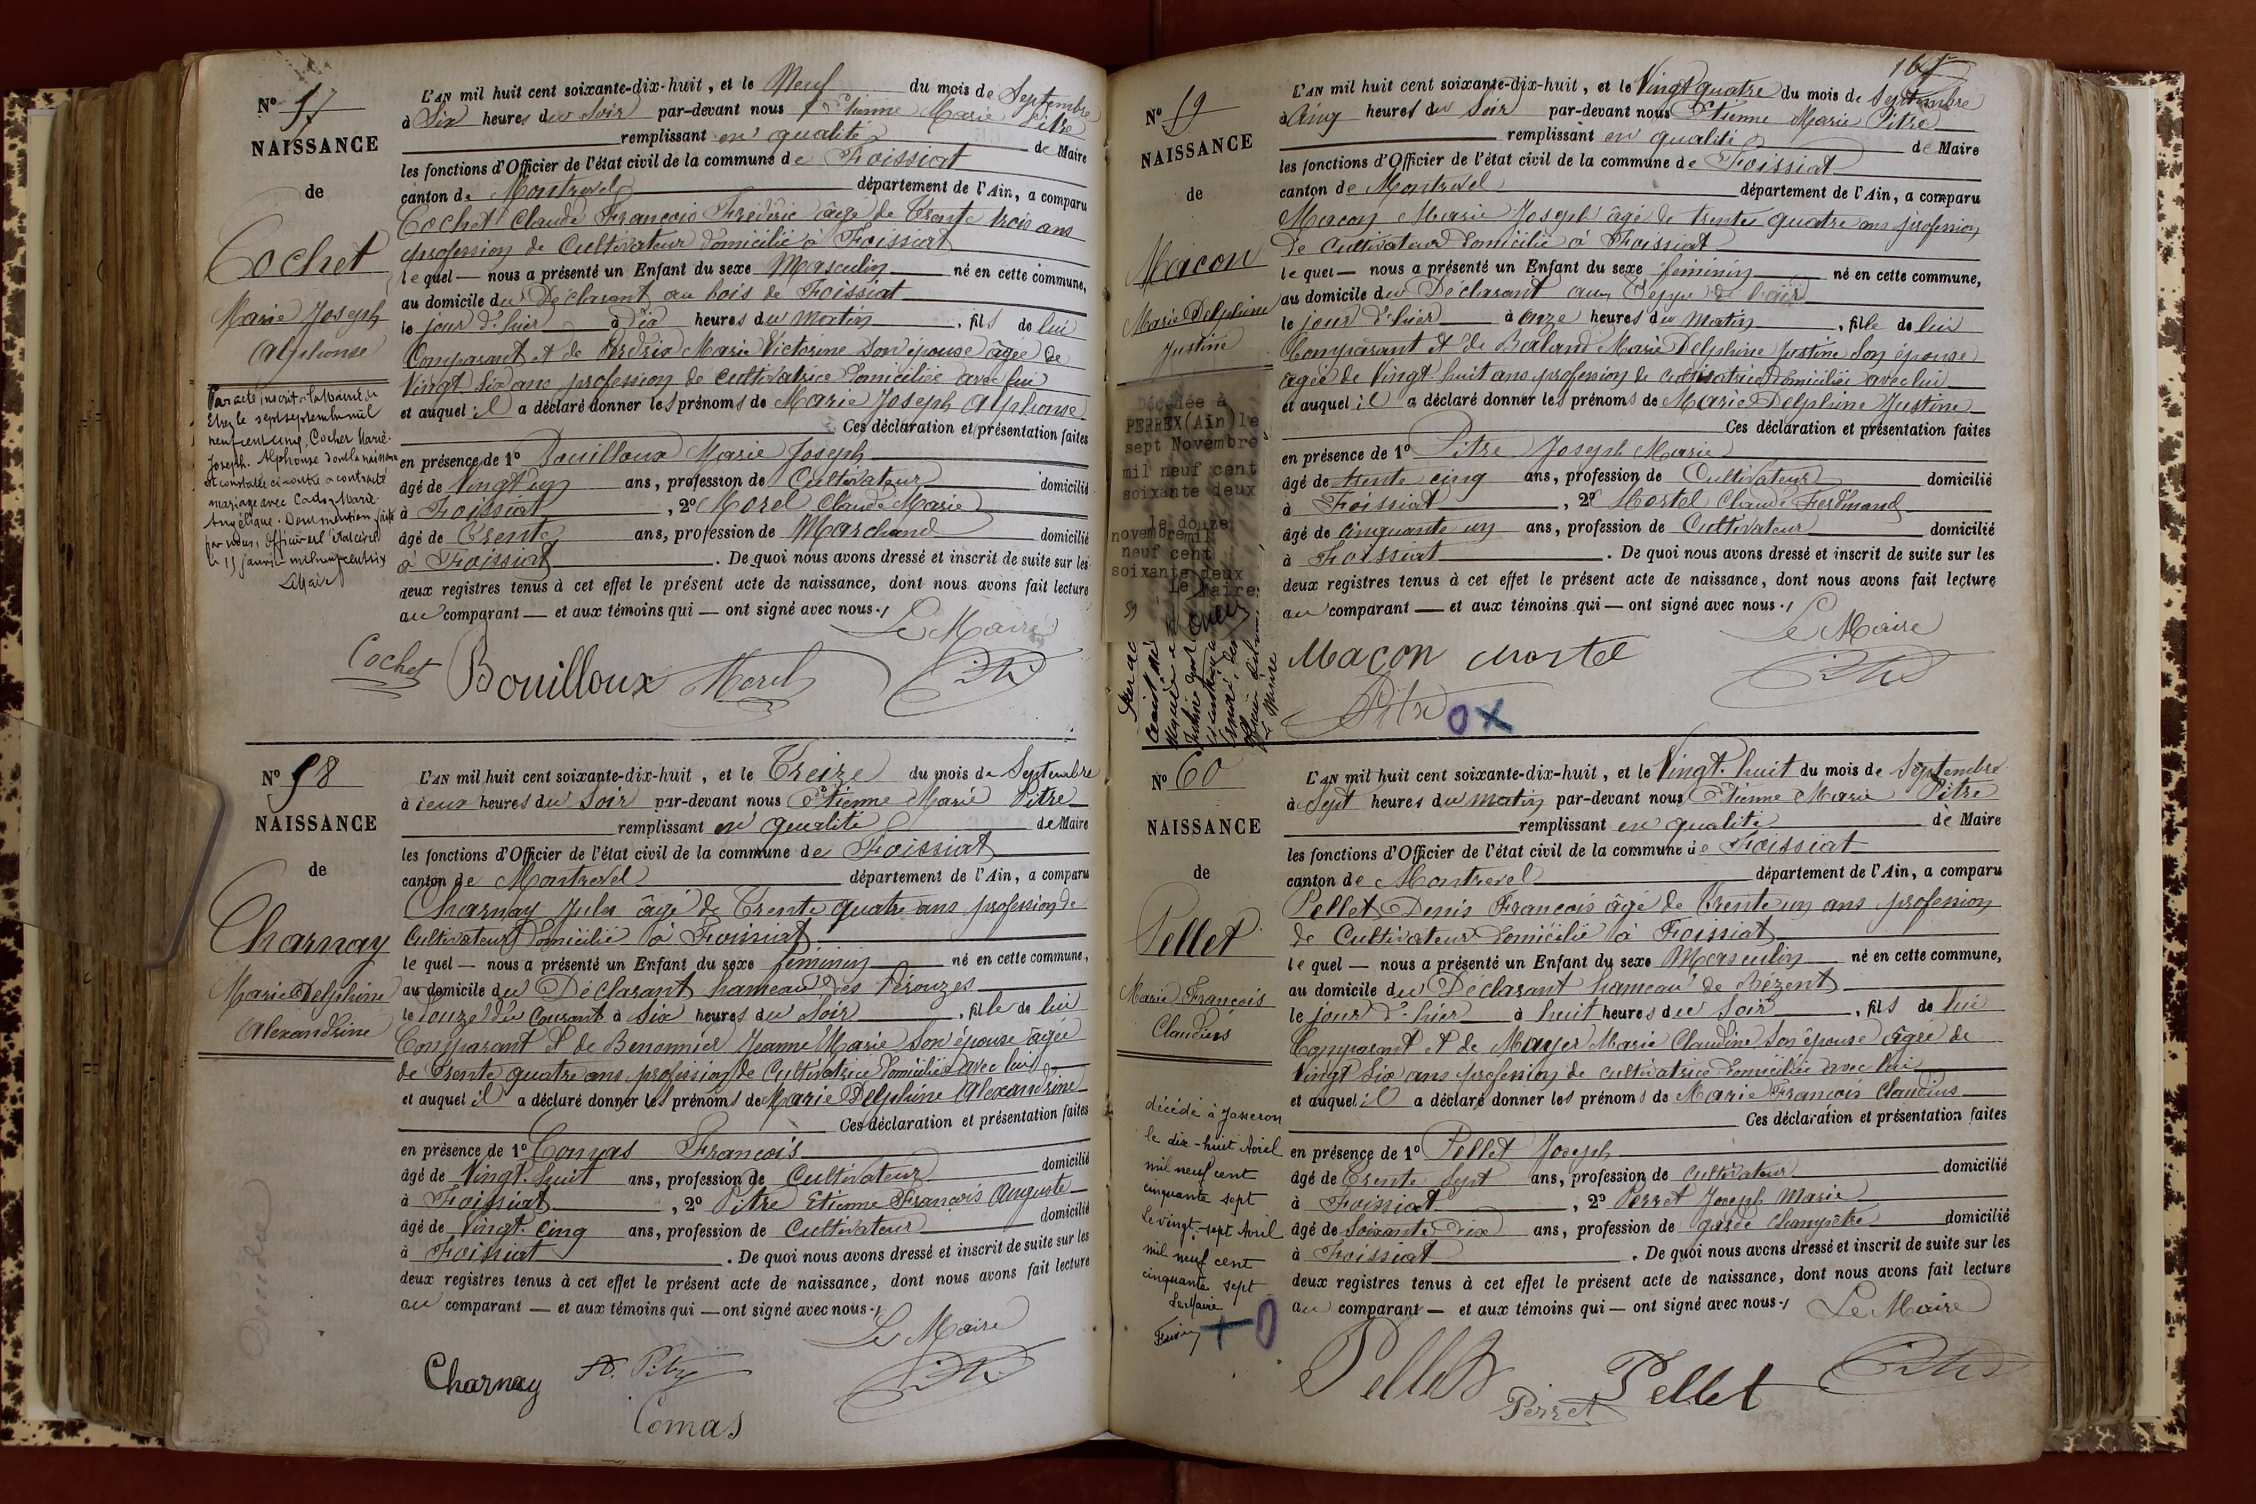 Nº 57
NAISSANCE
de
Cochet
Marie Joseph
Alphonse
Par acte inscrit à la Mairie de
Etrez le sept septembre mil
neuf cent cinq, Cochet Marie-
Joseph-Alphonse dont la naissance
est constatée ci-contre a contracté
mariage avec Marie-
Angélique. Dont mention faite
par nous, officier de l'état civil
le 15 janvier mil neuf cent six
Le Maire
L'AN mil huit cent soixante-dix-huit, et le Neuf du mois de Septembre
à Six heures du Soir par-devant nous Etienne Marie Pitre
remplissant en qualité de Maire
les fonctions d'Officier de l'état civil de la commune de Foissiat
canton de Montrevel département de l'Ain, a comparu
Cochet Claude François Frédéric âgé de Trente trois ans
profession de Cultivateur domicilié à Foissiat
lequel — nous a présenté un Enfant du sexe Masculin né en cette commune,
au domicile du Déclarant au bois de Foissiat
le jour d'hier à Dix heures du Matin, fils de lui
Comparant et de Marie Victorine son épouse âgée de
Vingt six ans profession de cultivatrice domiciliée avec lui
et auquel il a déclaré donner les prénoms de Marie Joseph Alphonse
Ces déclaration et présentation faites
en présence de 1º Bouilloux Marie Joseph
âgé de Vingt un ans, profession de Cultivateur domicilié
à Foissiat, 2º Morel Claude Marie
âgé de Trente ans, profession de Marchand domicilié
à Foissiat. De quoi nous avons dressé et inscrit de suite sur les
deux registres tenus à cet effet le présent acte de naissance, dont nous avons fait lecture
au comparant — et aux témoins qui — ont signé avec nous.
Le Maire
Cochet Bouilloux Morel Pitre
Nº 58
NAISSANCE
de
Charnay
Marie Delphine
Alexandrine
L'AN mil huit cent soixante-dix-huit, et le Treize du mois de Septembre
à deux heures du Soir par-devant nous Etienne Marie Pitre
remplissant en qualité de Maire
les fonctions d'Officier de l'état civil de la commune de Foissiat
canton de Montrevel département de l'Ain, a comparu
Charnay Jules âgé de Trente quatre ans profession de
Cultivateur domicilié à Foissiat
lequel — nous a présenté un Enfant du sexe féminin né en cette commune,
au domicile du Déclarant hameau des Pérouzes
le douze du Courant à Six heures du Soir, fille de lui
Comparant et de Benonnier Jeanne Marie son épouse âgée
de Trente quatre ans profession de Cultivatrice domiciliée avec lui
et auquel il a déclaré donner les prénoms de Marie Delphine Alexandrine
Ces déclaration et présentation faites
en présence de 1º Comas François
âgé de Vingt-huit ans, profession de Cultivateur domicilié
à Foissiat, 2º Pitre Etienne François Auguste
âgé de Vingt-Cinq ans, profession de Cultivateur domicilié
à Foissiat. De quoi nous avons dressé et inscrit de suite sur les
deux registres tenus à cet effet le présent acte de naissance, dont nous avons fait lecture
au comparant — et aux témoins qui — ont signé avec nous.
Le Maire
Charnay A. Pitre Pitre
Comas
Nº 59
NAISSANCE
de
Macon
Marie Delphine
Justine
Décédée à
PERREX (Ain) le
sept Novembre
mil neuf cent
soixante deux
le douze
novembre mil
neuf cent
soixante deux
Le Maire
L'AN mil huit cent soixante-dix-huit, et le Vingt quatre du mois de Septembre
à Cinq heures du Soir par-devant nous Etienne Marie Pitre
remplissant en qualité de Maire
les fonctions d'Officier de l'état civil de la commune de Foissiat
canton de Montrevel département de l'Ain, a comparu
Macon Marie Joseph âgé de trente quatre ans profession
de Cultivateur domicilié à Foissiat
lequel — nous a présenté un Enfant du sexe féminin né en cette commune,
au domicile du Déclarant aux
le jour d'hier à onze heures du Matin, fille de lui
Comparant et de Baland Marie Delphine Justine son épouse
âgée de Vingt huit ans profession de cultivatrice domiciliée avec lui
et auquel il a déclaré donner les prénoms de Marie Delphine Justine
Ces déclaration et présentation faites
en présence de 1º Pitre Joseph Marie
âgé de trente cinq ans, profession de Cultivateur domicilié
à Foissiat, 2º Mortel Claude Ferdinand
âgé de cinquante un ans, profession de Cultivateur domicilié
à Foissiat. De quoi nous avons dressé et inscrit de suite sur les
deux registres tenus à cet effet le présent acte de naissance, dont nous avons fait lecture
au comparant — et aux témoins qui — ont signé avec nous.
Le Maire
Macon Mortel Pitre
Pitre O X
Nº 60
NAISSANCE
de
Pellet
Marie François
Claudius
décédé à Jasseron
le dix-huit Avril
mil neuf cent
cinquante sept
Le vingt-sept Avril
mil neuf cent
cinquante sept
Le Maire
L'AN mil huit cent soixante-dix-huit, et le Vingt-huit du mois de Septembre
à Sept heures du matin par-devant nous Etienne Marie Pitre
remplissant en qualité de Maire
les fonctions d'Officier de l'état civil de la commune de Foissiat
canton de Montrevel département de l'Ain, a comparu
Pellet Denis François âgé de Trente un ans profession
de Cultivateur domicilié à Foissiat
lequel — nous a présenté un Enfant du sexe Masculin né en cette commune,
au domicile du Déclarant hameau de Bézent
le jour d'hier à huit heures du Soir, fils de lui
Comparant et de Mayer Marie Claudine son épouse âgée de
Vingt Six ans profession de cultivatrice domiciliée avec lui
et auquel il a déclaré donner les prénoms de Marie François Claudius
Ces déclaration et présentation faites
en présence de 1º Pellet Joseph
âgé de Trente Sept ans, profession de cultivateur domicilié
à Foissiat, 2º Perret Joseph Marie
âgé de Soixante-Dix ans, profession de garde champêtre domicilié
à Foissiat. De quoi nous avons dressé et inscrit de suite sur les
deux registres tenus à cet effet le présent acte de naissance, dont nous avons fait lecture
au comparant — et aux témoins qui — ont signé avec nous.
Le Maire
Pellet Perret Pellet Pitre